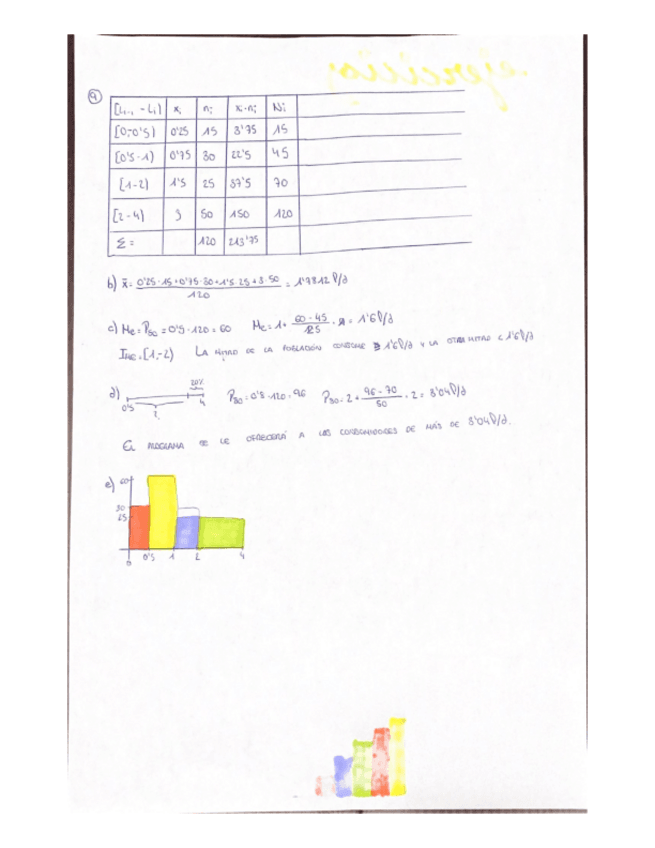 ejercicios
a)
[Li-1 - Li) xi ni xi·ni Ni
[0-0'5) 0'25 15 3'75 15
[0'5-1) 0'75 30 22'5 45
[1-2) 1'5 25 37'5 70
[2-4) 3 50 150 120
Σ= 120 213'75
b) x̄ = 0'25·15+0'75·30+1'5·25+3·50 / 120 = 1'7812 l/d
c) Me = P50 = 0'5·120 = 60 Me = 1 + 60-45 / 25 · 1 = 1'6 l/d
IMe = [1-2) LA MITAD DE LA POBLACIÓN CONSUME 1'6 l/d Y LA OTRA MITAD < 1'6 l/d
d) 20% 0'5 4 P80 = 0'8·120 = 96 P80 = 2 + 96-70 / 50 · 2 = 3'04 l/d
EL PROGRAMA SE LE OFRECERÁ A LOS CONSUMIDORES DE MÁS DE 3'04 l/d.
e) 60
30
25
0 0'5 1 2 4